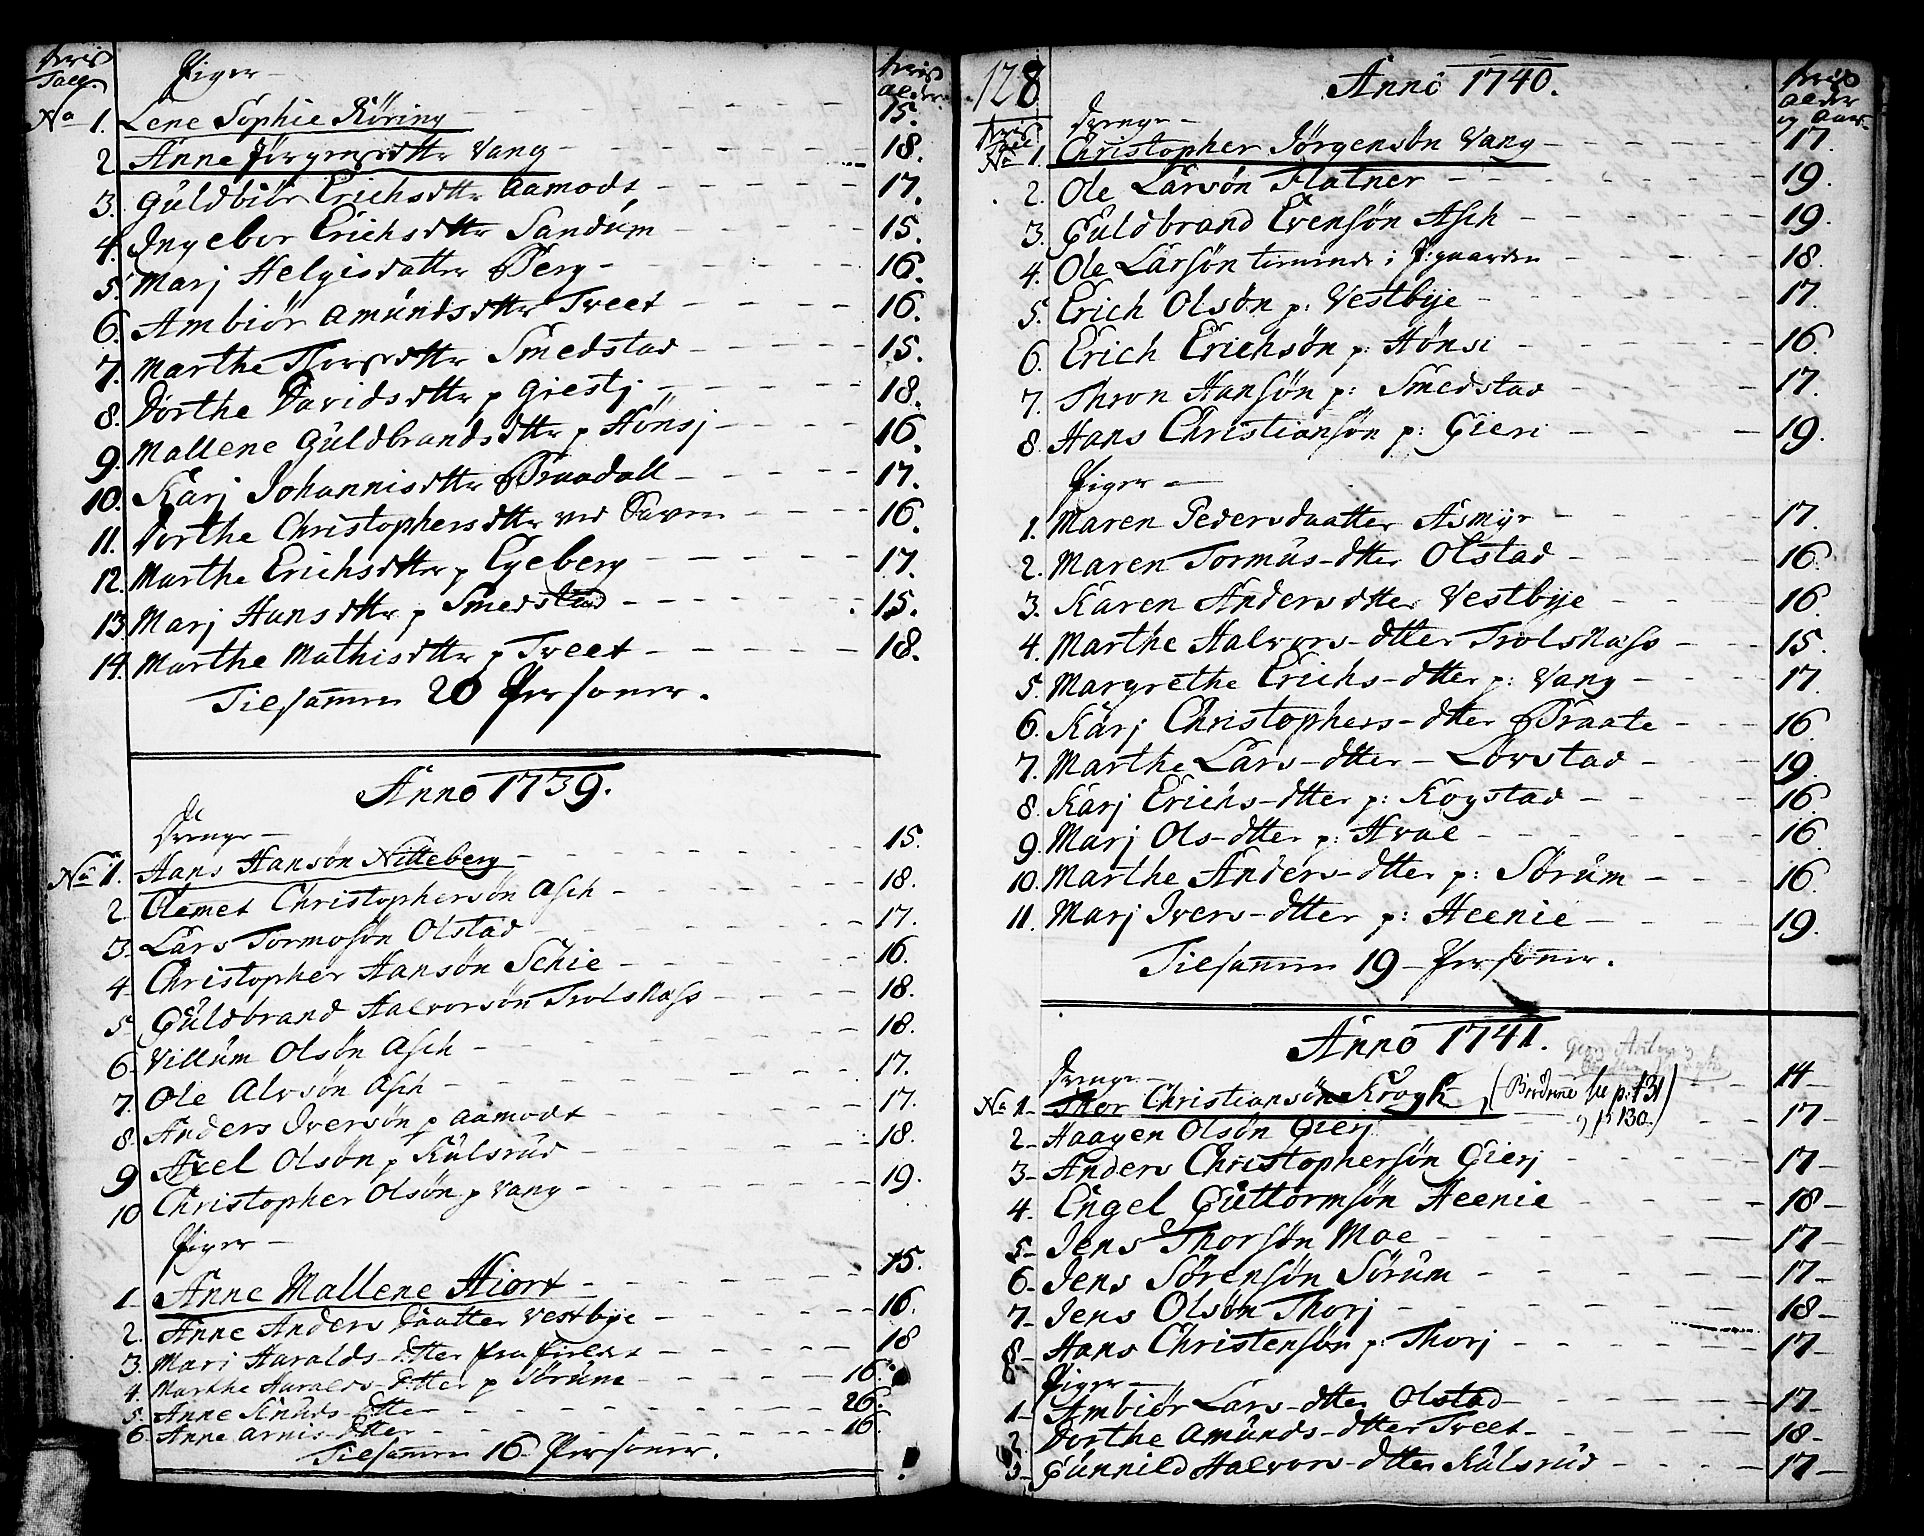 Deris Tall. Piger – Deris alder
No 1. Lene Sophie Röring 15.
2. Anne Jörgensdttr Vang 18.
3. Guldbiör Erichsdttr Aamodt 17.
4. Ingebor Erichsdttr Sandum 15.
5. Marj Helgisdatter Berg 16.
6. Ambiör Amundsdttr Tveet 16.
7. Marthe Thorsdttr Smedstad 15.
8. Dorthe Davidsdttr p Giestj 18.
9. Mallene Guldbrandsdttr p Hönsj 16.
10. Karj Johannisdttr Braadall 17.
11. Dorthe Christophersdttr ved 16.
12. Marthe Erichsdttr p Egeberg 17.
13. Marj Hansdttr p Smedstad 15.
14. Marthe Mathisdttr p Tveet 18.
Tilsammen 20 Personer.
Anno 1739.
Drenge –
No 1. Hans Hansön Nitteberg 15.
2. Clemet Christophersön Asch 18.
3. Lars Tormosön Olstad 17.
4. Christopher Hansön Schie 16.
5. Guldbrand Halvorsön Trolsnass 18.
6. Villum Olsön Asch 18.
7. Ole Alvsön Asch 17.
8. Anders Iversön p Aamodt 17.
9. Axel Olsön p Kulsrud 18.
10 Christopher Olsön p Vang 19.
Piger –
1. Anne Mallene Hiort 15.
2. Anne Anders Daatter Vestbye 16.
3. Mari Haralds-dtter fra 18
4. Marthe Haralds-dtter p Sörum 16.
5. Anne Knuds-dtter 26.
6. Anne Arnis-dtter 16
Tilsammen 16 Personer.
128 Anno 1740. Deris alder og Aar
Deris Tall Drenge –
No 1. Christopher Jörgensön Vang 17.
2. Ole Larsön Flatner 19.
3. Guldbrand Evensön Asch 19.
4. Ole Larsön tienende i P:gaarden 18.
5. Erich Olsön p: Vestbye 17.
6. Erich Erichsön p: Hönsi 16.
7. Thron Hansön p: Smedstad 17.
8 Hans Christiansön p: Gieri 19.
Piger –
1. Maren Pedersdaatter Asmyr 17.
2. Maren Tormus-dtter Olstad 16.
3. Karen Andersdtter Vestbye 16.
4. Marthe Halvors-dtter Trolsnass 15.
5. Margrethe Erichs-dtter p: Vang 17.
6. Karj Christophers-dtter Braate 16.
7. Marthe Lars-dtter – Lovstad 19.
8. Karj Erichs-dtter p: Kogstad 16
9. Marj Ols-dtter p: Hval 16.
10. Marthe Anders-dtter p: Sörum 16.
11. Marj Ivers-dtter p: Heenie 19.
Tilsammen 19 – Personer.
Anno 1741.
Drenge –
No 1. Thor Christiansön Krogh (Brödrene se p. 131 14
2 p 130) 2 Haagen Olsön Gierj 17
3 Anders Christophersön Gierj 17
4. Engel Guttormsön Heenie 18
5 Jens Thorsön Moe 17
6 Jens Sörensön Sörum 17
7 Jens Olsön Thorj 18
8 Hans Christensön p: Thorj 17
Piger –
1 Ambiör Lars-dtter Olstad 17
2. Dorthe Amunds-dtter Tveet 18
3 Gunnild Halvors-dtter Kulsrud 17